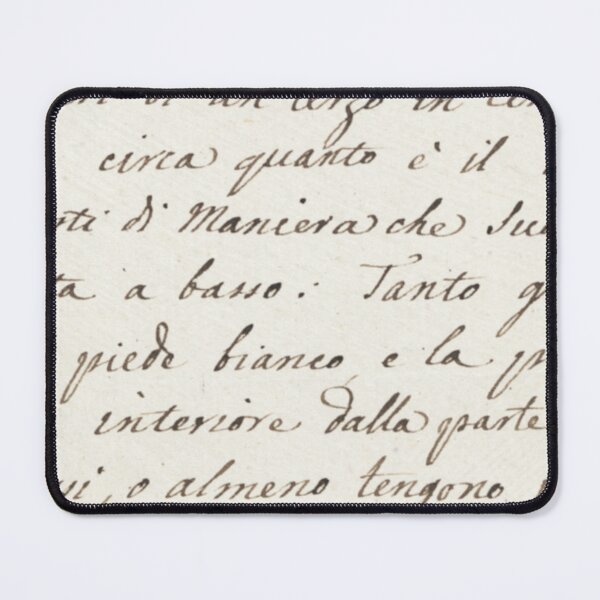 di un terzo in
circa quanto è il
di Maniera che
a basso: Tanto
piede bianco, e la
interiore dalla parte
o almeno tengono